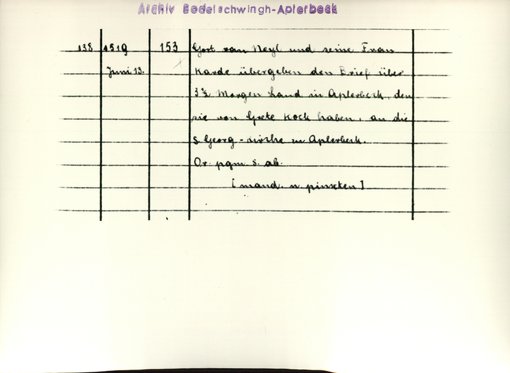 Archiv Bodelschwingh-Aplerbeck
138 1519 153 Gort van Neyl und seine Frau
Juni 13. Karde übergeben den Brief über
3½ Morgen Land in Aplerbeck, den
sie von Grete Kock haben, an die
S. Georg-Kirche in Aplerbeck.
Or. pgm. s. ab.
[mand. n